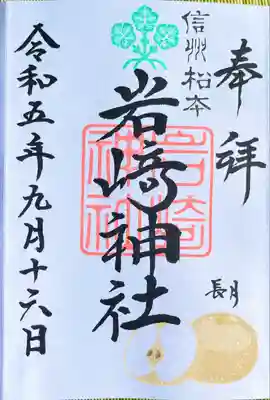 奉拝
長月
信州松本
岩﨑神社
岩崎神社
令和五年九月十六日